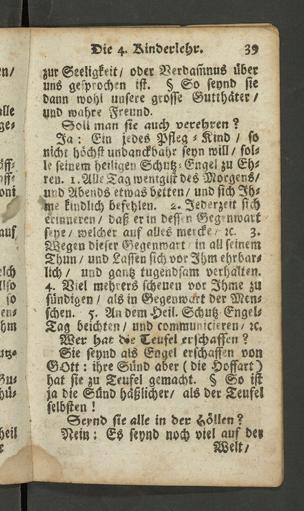 Die 4. Kinderlehr. 39
zur Seeligkeit/ oder Verdam̃nus über
uns gesprochen ist. § So seynd sie
dann wohl unsere grosse Gutthäter/
und wahre Freund.
Soll man sie auch verehren?
Ja: Ein jedes Pfleg-Kind/ so
nicht höchst undanckbahr seyn will/ sol-
le seinem heiligen Schutz-Engel zu Eh-
ren. 1. Alle Tag wenigst des Morgens/
und Abends etwas betten/ und sich Ih-
me kindlich befehlen. 2. Jederzeit sich
erinneren/ daß er in dessen Gegenwart
seye/ welcher auf alles mercke/ ꝛc. 3.
Wegen dieser Gegenwart/ in all seinem
Thun/ und Lassen sich vor Ihm ehrbar-
lich/ und gantz tugendsam verhalten.
4. Viel mehrers scheuen vor Ihme zu
sündigen/ als in Gegenwart der Men-
schen. 5. An dem Heil. Schutz-Engel-
Tag beichten/ und communicieren/ ꝛc.
Wer hat die Teufel erschaffen?
Sie seynd als Engel erschaffen von
GOtt: ihre Sünd aber (die Hoffart)
hat sie zu Teufel gemacht. § So ist
ja die Sünd häßlicher/ als der Teufel
selbsten!
Seynd sie alle in der Höllen?
Nein: Es seynd noch viel auf der
Welt/